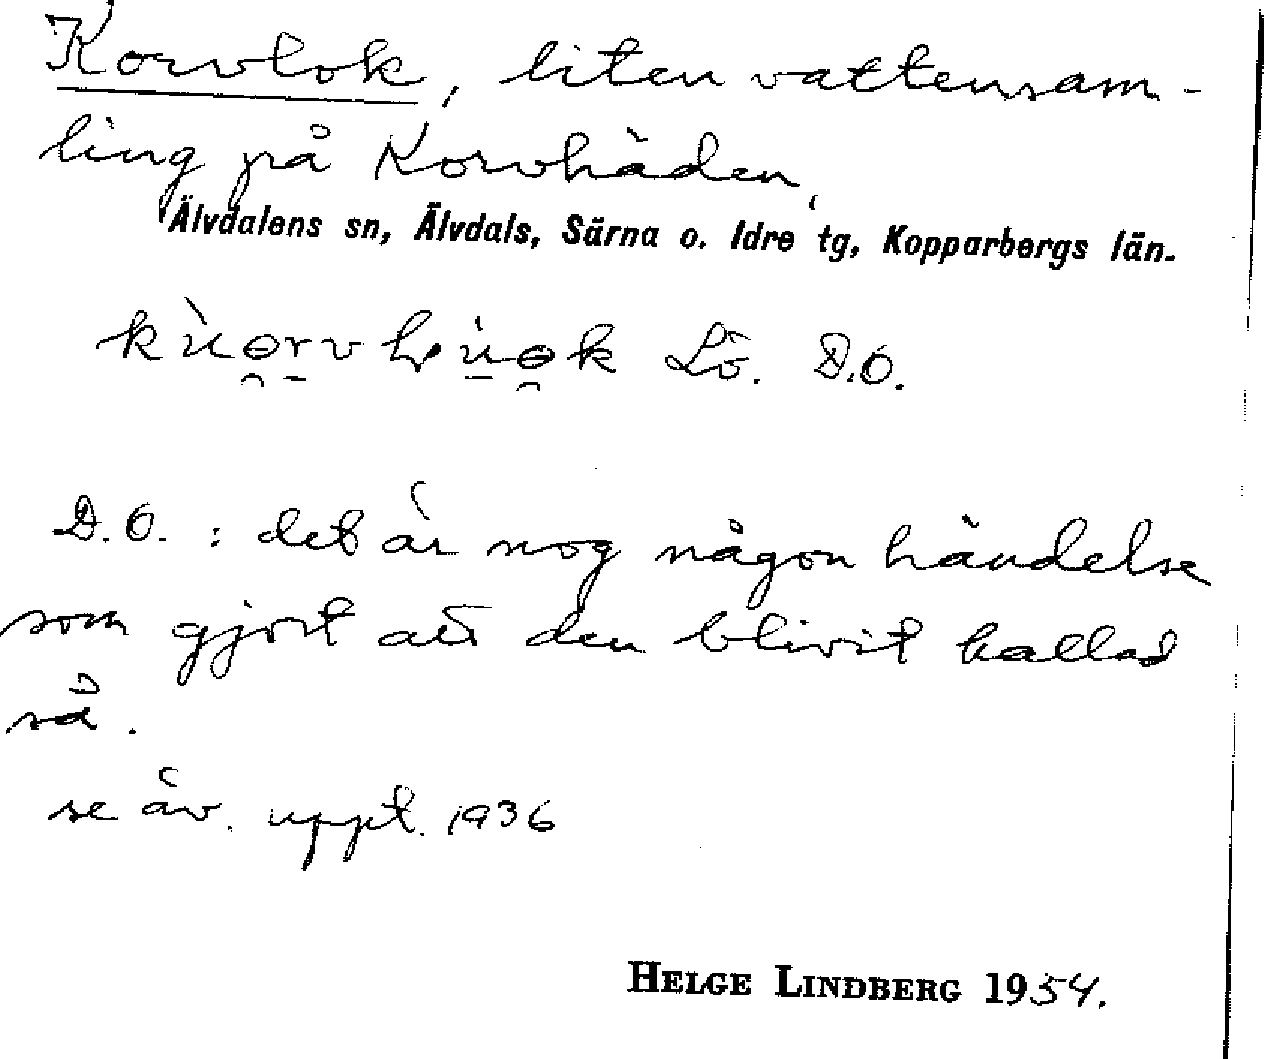 Korvlok, liten vattensam-
ling på Korvhäden,
Älvdalens sn, Älvdals, Särna o. Idre tg, Kopparbergs län.
Lö. D.O.
D.O. : det är nog någon händelse
som gjort att den blivit kallad
så.
se äv. uppt. 1936
HELGE LINDBERG 1954.